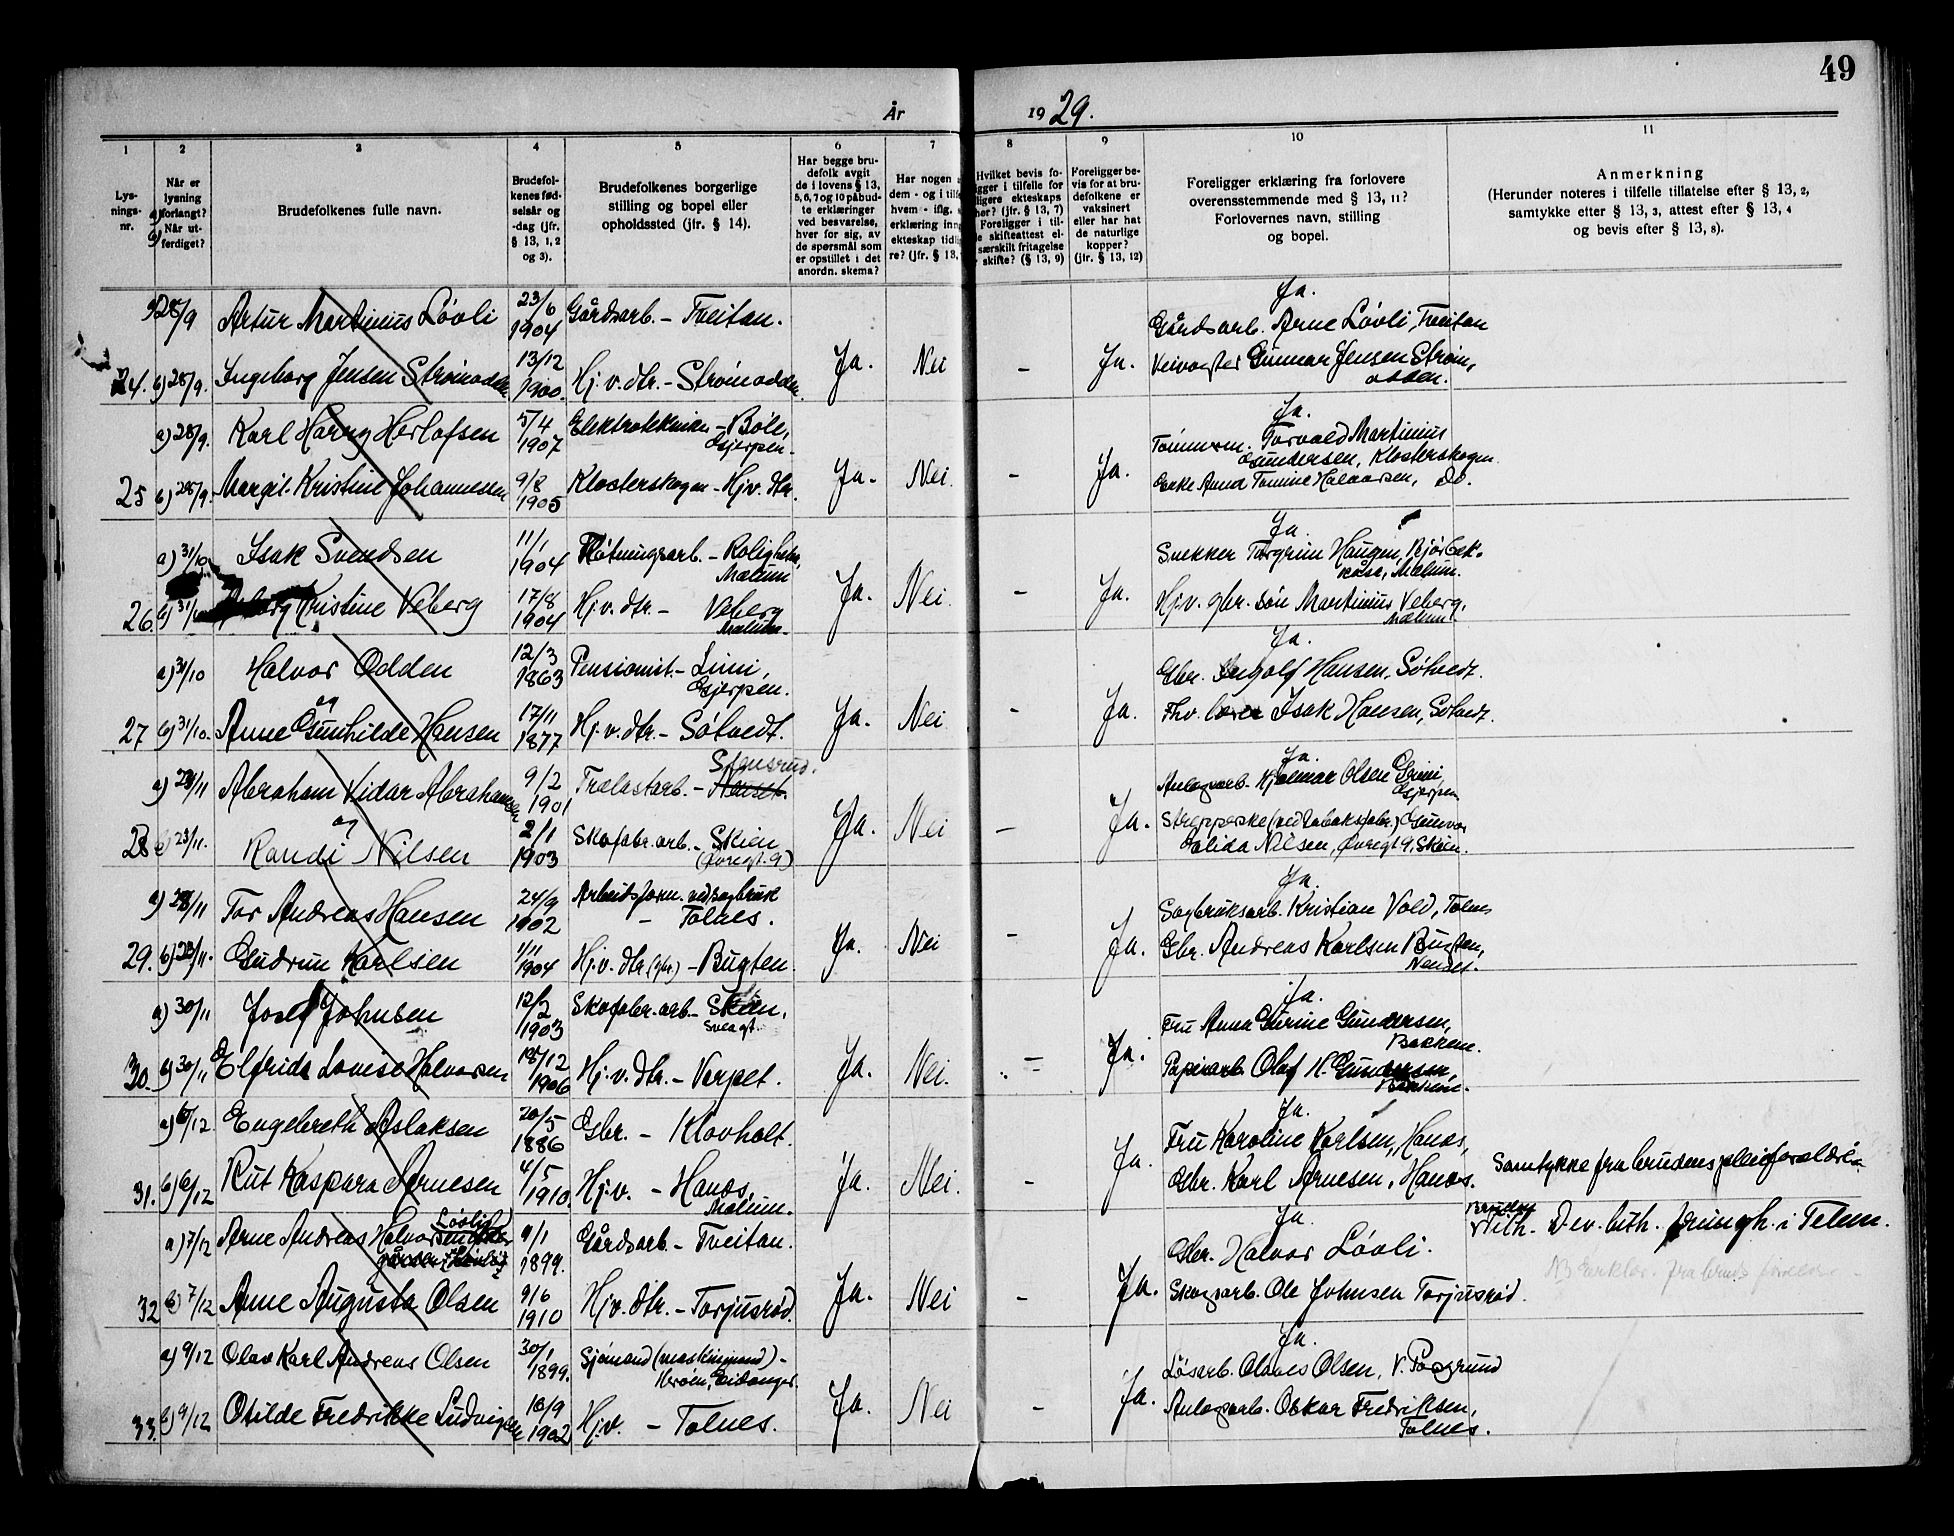 49
År 1929.
1 2 3 4 5 6 7 8 9 10 11
Lysnings-nr.
Når er lysning forlangt? Når utferdiget?
a)
b)
Brudefolkenes fulle navn.
Brudefolkenes fødselsår og -dag (jfr. § 13, 1, 2 og 3).
Brudefolkenes borgerlige stilling og bopel eller opholdssted (jfr. § 14).
Har begge brudefolk avgit de i lovens § 13, 5, 6, 7 og 10 påbudte erklæringer ved besvarelse, hver for sig, av de spørsmål som er opstillet i det anordn. skema?
Har nogen
dem - og i tilf
hvem - iflg.
erklæring inn
ekteskap tidl
re? (jfr. § 13,
Hvilket bevis fo-
igger i tilfelle for
ligere ekteskaps
her? (jfr. § 13, 7)
Foreligger i til-
le skifteattest el-
særskilt fritagelse
skifte? (§ 13, 9)
Foreligger bevis for at brudefolkene er vaksinert eller har hat de naturlige kopper? (jfr. § 13, 12)
Foreligger erklæring fra forlovere overensstemmende med § 13, 11? Forlovernes navn, stilling og bopel.
Anmerkning
(Herunder noteres i tilfelle tillatelse efter § 13, 2, samtykke etter § 13, 3, attest efter § 13, 4 og bevis efter § 13, 8).
a) 28/9 Artur Martinius Lövli 23/6 1904 Gårdsarb. – Tveitan. Ja.
Gårdsarb. Arne Lövli, Tveitan
24. b) 28/9. Ingeborg Jensen Strömodden 13/12 1900. Hj. v. dtr. – Strömodden. Ja. Nei – Ja. Veivogter Gunnar Jensen Ström,
odden.
a) 28/9. Karl Harry Herlofsen 5/4 1907 Elektrotekniker – Böle, Gjerpen. Ja.
Torvald Martinius
Gundersen, Klosterskogen
25 b) 28/9. Margit Kristine Johannessen 9/8 1905 Klosterskogen – Hjv. dtr. Ja. Nei. – Ja. Enke Anna Tomine Halvorsen, Do.
a) 31/10 Isak Svendsen 11/1 1904 Fløtningsarb. – Roligheten, Mælum Ja.
Snekker Torgrim Haugen, Bjørbek-
kåsa, Mælum.
26. b) 31/10 Kristine Veberg 17/8 1904 Hj. v. dtr. – Veberg Mælum. Ja. Nei. – Ja. Hj. v. gbr. søn Martinius Veberg,
Mælum.
a) 31/10 Halvor Odden 12/3 1863 Pensionist. – Limi, Gjerpen. Ja.
Gbr. Ingolf Hansen, Sötvedt.
og
27 b) 31/10. Anne Gunhilde Hansen 17/11 1877 Hj. v. dtr. – Sötvedt. Ja. Nei. – Ja. Fhv. lærer Isak Hansen, Sötvedt.
a) 23/11 Abraham Vidar Abrahamsen 9/2 1901 Trælastarb. – Stensrud. Ja.
Anlægsarb. Hjalmar Olsen Grini,
Gjerpen
og
28 b) 23/11. Randi Nilsen 2/1 1903 Skofabr. arb. – Skien (Øvregt. 9) Ja. Nei – Ja. (ved tobaksfabr.) Gunvor
Nilsen, Øvregt 9, Skien.
a) 23/11 Tor Andreas Hansen 24/9 1902 Arbeidsform. ved sagbruk – Tolnes. Ja.
Sagbruksarb. Kristian Vold, Tolnes
29. b) 23/11. Gudrun Karlsen 1/11 1904 Hj. v. dtr. (gbr.) – Bugten. Ja. Nei – Ja. Gbr. Andreas Karlsen Bugten,
Nenset.
a) 30/11 Josef Johnsen 12/2 1903 Skofabr. arb. – Skien, Sneagt. Ja.
Fru Anna Gurine Gundersen,
Bakkene.
30. b) 30/11 Elfrida Lovise Halvorsen 18/12 1906 Hj. v. dtr. – Vorpet. Ja. Nei. – Ja. Papirarb. Olaf H. Gundersen,
Bakkene.
a) 6/12. Engebreth Aslaksen 20/5 1886 Gbr. – Klovholt. Ja.
Fru Karoline Karlsen, Hanås,
31. b) 6/12 Rut Kaspara Arnesen 4/5 1910. Hj. v. – Hanås, Mælum. Ja. Nei. – Ja. Gbr. Karl Arnesen, Hanås. Samtykke fra brudens pleieforældre
a) 7/12 Arne Andreas Halvorsen Lövli 9/1 1899. Gårdsarb. – Tveitan. Ja.
Gbr. Halvor Lövli.
tilh. D. ev. luth. i Telem.
32 b) 7/12 Anne Augusta Olsen 9/6 1910 Hj. v. dtr. – Torjusröd. Ja. Nei – Ja. Skogsarb. Ole Johnsen Torjusröd.
a) 9/12 Olav Karl Andreas Olsen 30/1 1899. Sjömand (maskinmand) – Herøen, Eidanger. Ja.
Løsarb. Olaves Olsen, V. Porsgrund
33. b) 9/12 Otilde Fredrikke Ludvigsen 18/9 1902 Hj. v. – Tolnes. Ja. Nei – Ja. Anlægsarb. Oskar Fredriksen,
Tolnes.